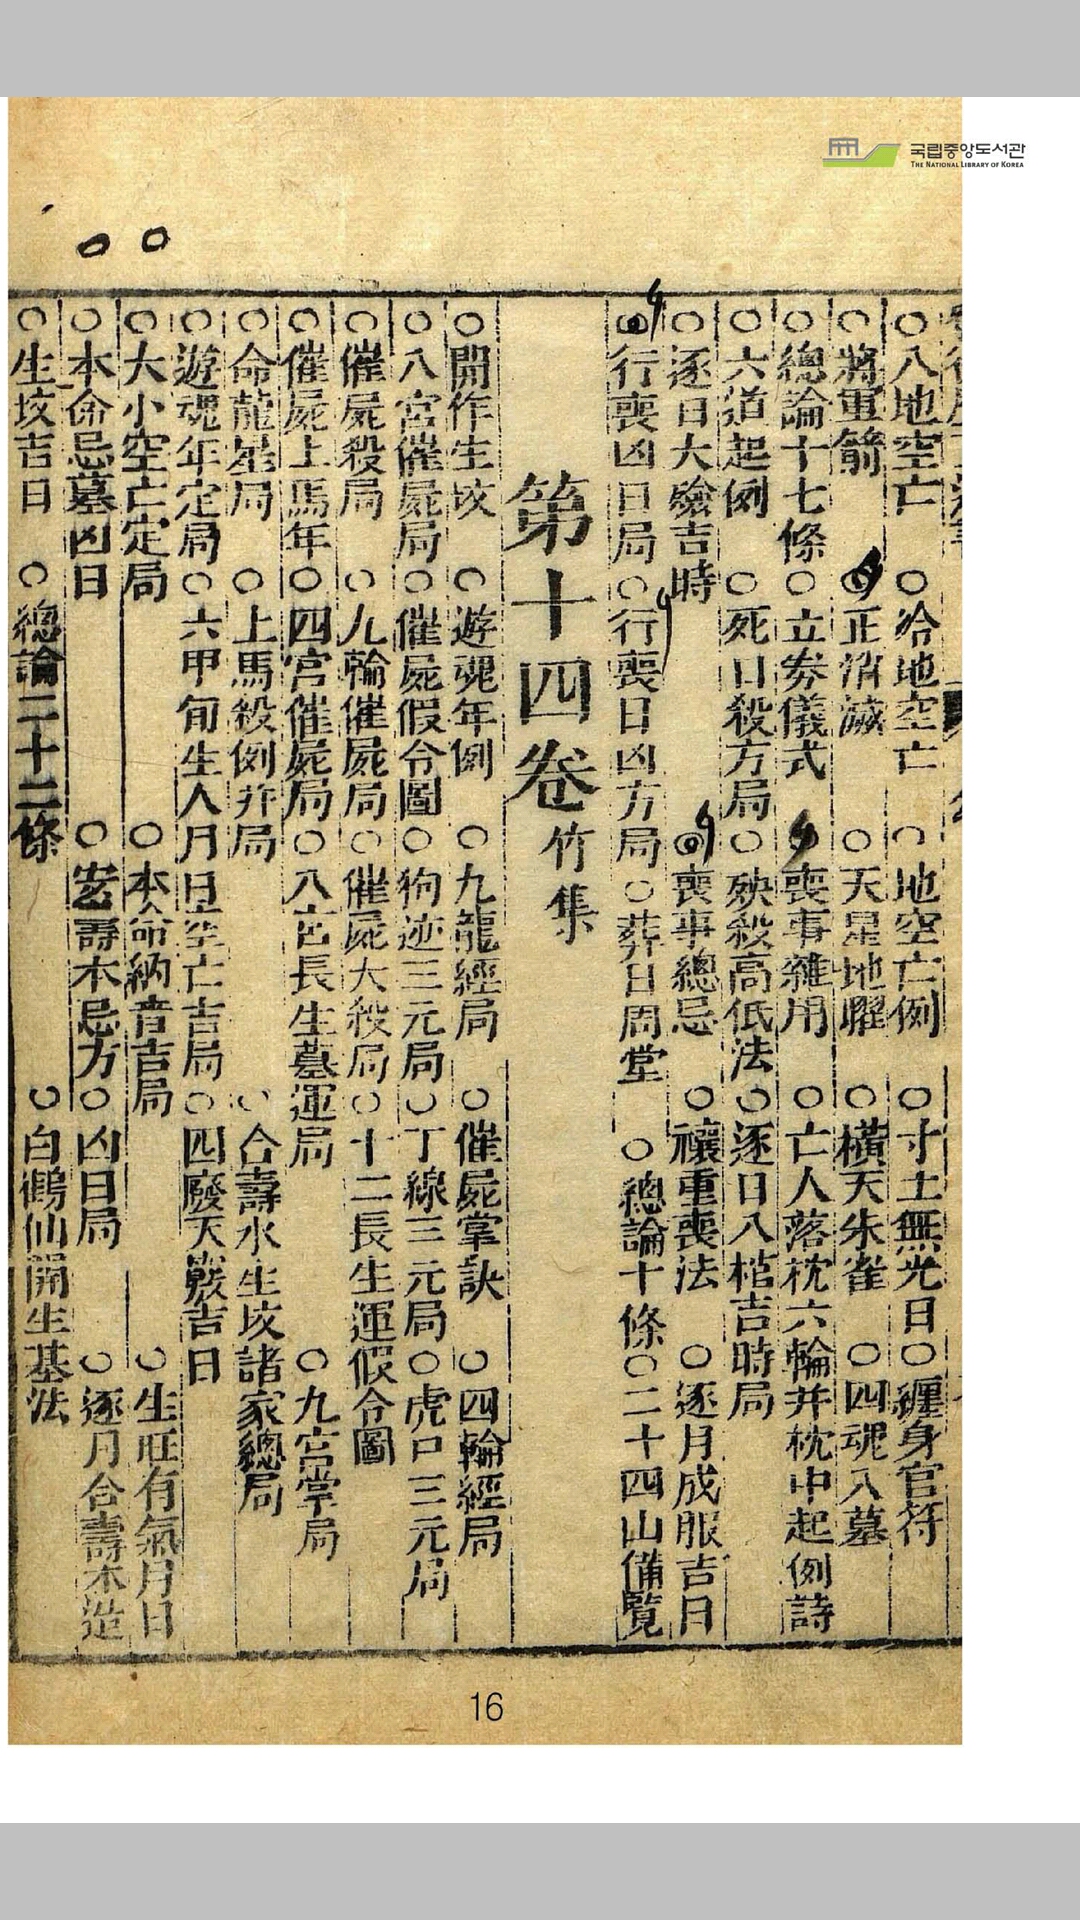 국립중앙도서관
THE NATIONAL LIBRARY OF KOREA
○八地空亡 ○冾地空亡 ○地空亡例 ○寸土無光日○纏身官符
○將軍箭 ○正消滅 ○天星地曜 ○橫天朱雀 ○四魂入墓
○總論十七條○立券儀式 喪事雜用 ○亡人落枕六輪并枕中起例詩
○六道起例 ○死日殺方局○殃殺高低法○逐日入棺吉時局
○逐日大殮吉時 ○喪事總忌 ○禳重喪法 ○逐月成服吉日
○行喪凶日局○行喪日凶方局○葬日周堂 ○總論十條○二十四山備覽
第十四卷竹集
○開作生坟 ○遊魂年例 ○九龍經局 ○催屍掌訣 ○四輪經局
○八宮催屍局○催屍假令圖○狗迹三元局○丁線三元局○虎口三元局
○催屍殺局 ○九輪催屍局○催屍大殺局○十二長生運假令圖
○催屍上馬年○四宮催屍局○八宮長生墓運局 ○九宮掌局
○命龍星局 ○上馬殺例并局 ○合壽水生坟諸家總局
○遊魂年定局○六甲旬生人月日空亡吉局○四廢天戮吉日
○大小空亡定局 ○本命納音吉局 ○生旺有氣月日
○本命忌墓凶日 ○宏壽木忌方○凶日局 ○逐月合壽木造
○生坟吉日 ○總論二十二條 ○白鶴仙開生基法
16